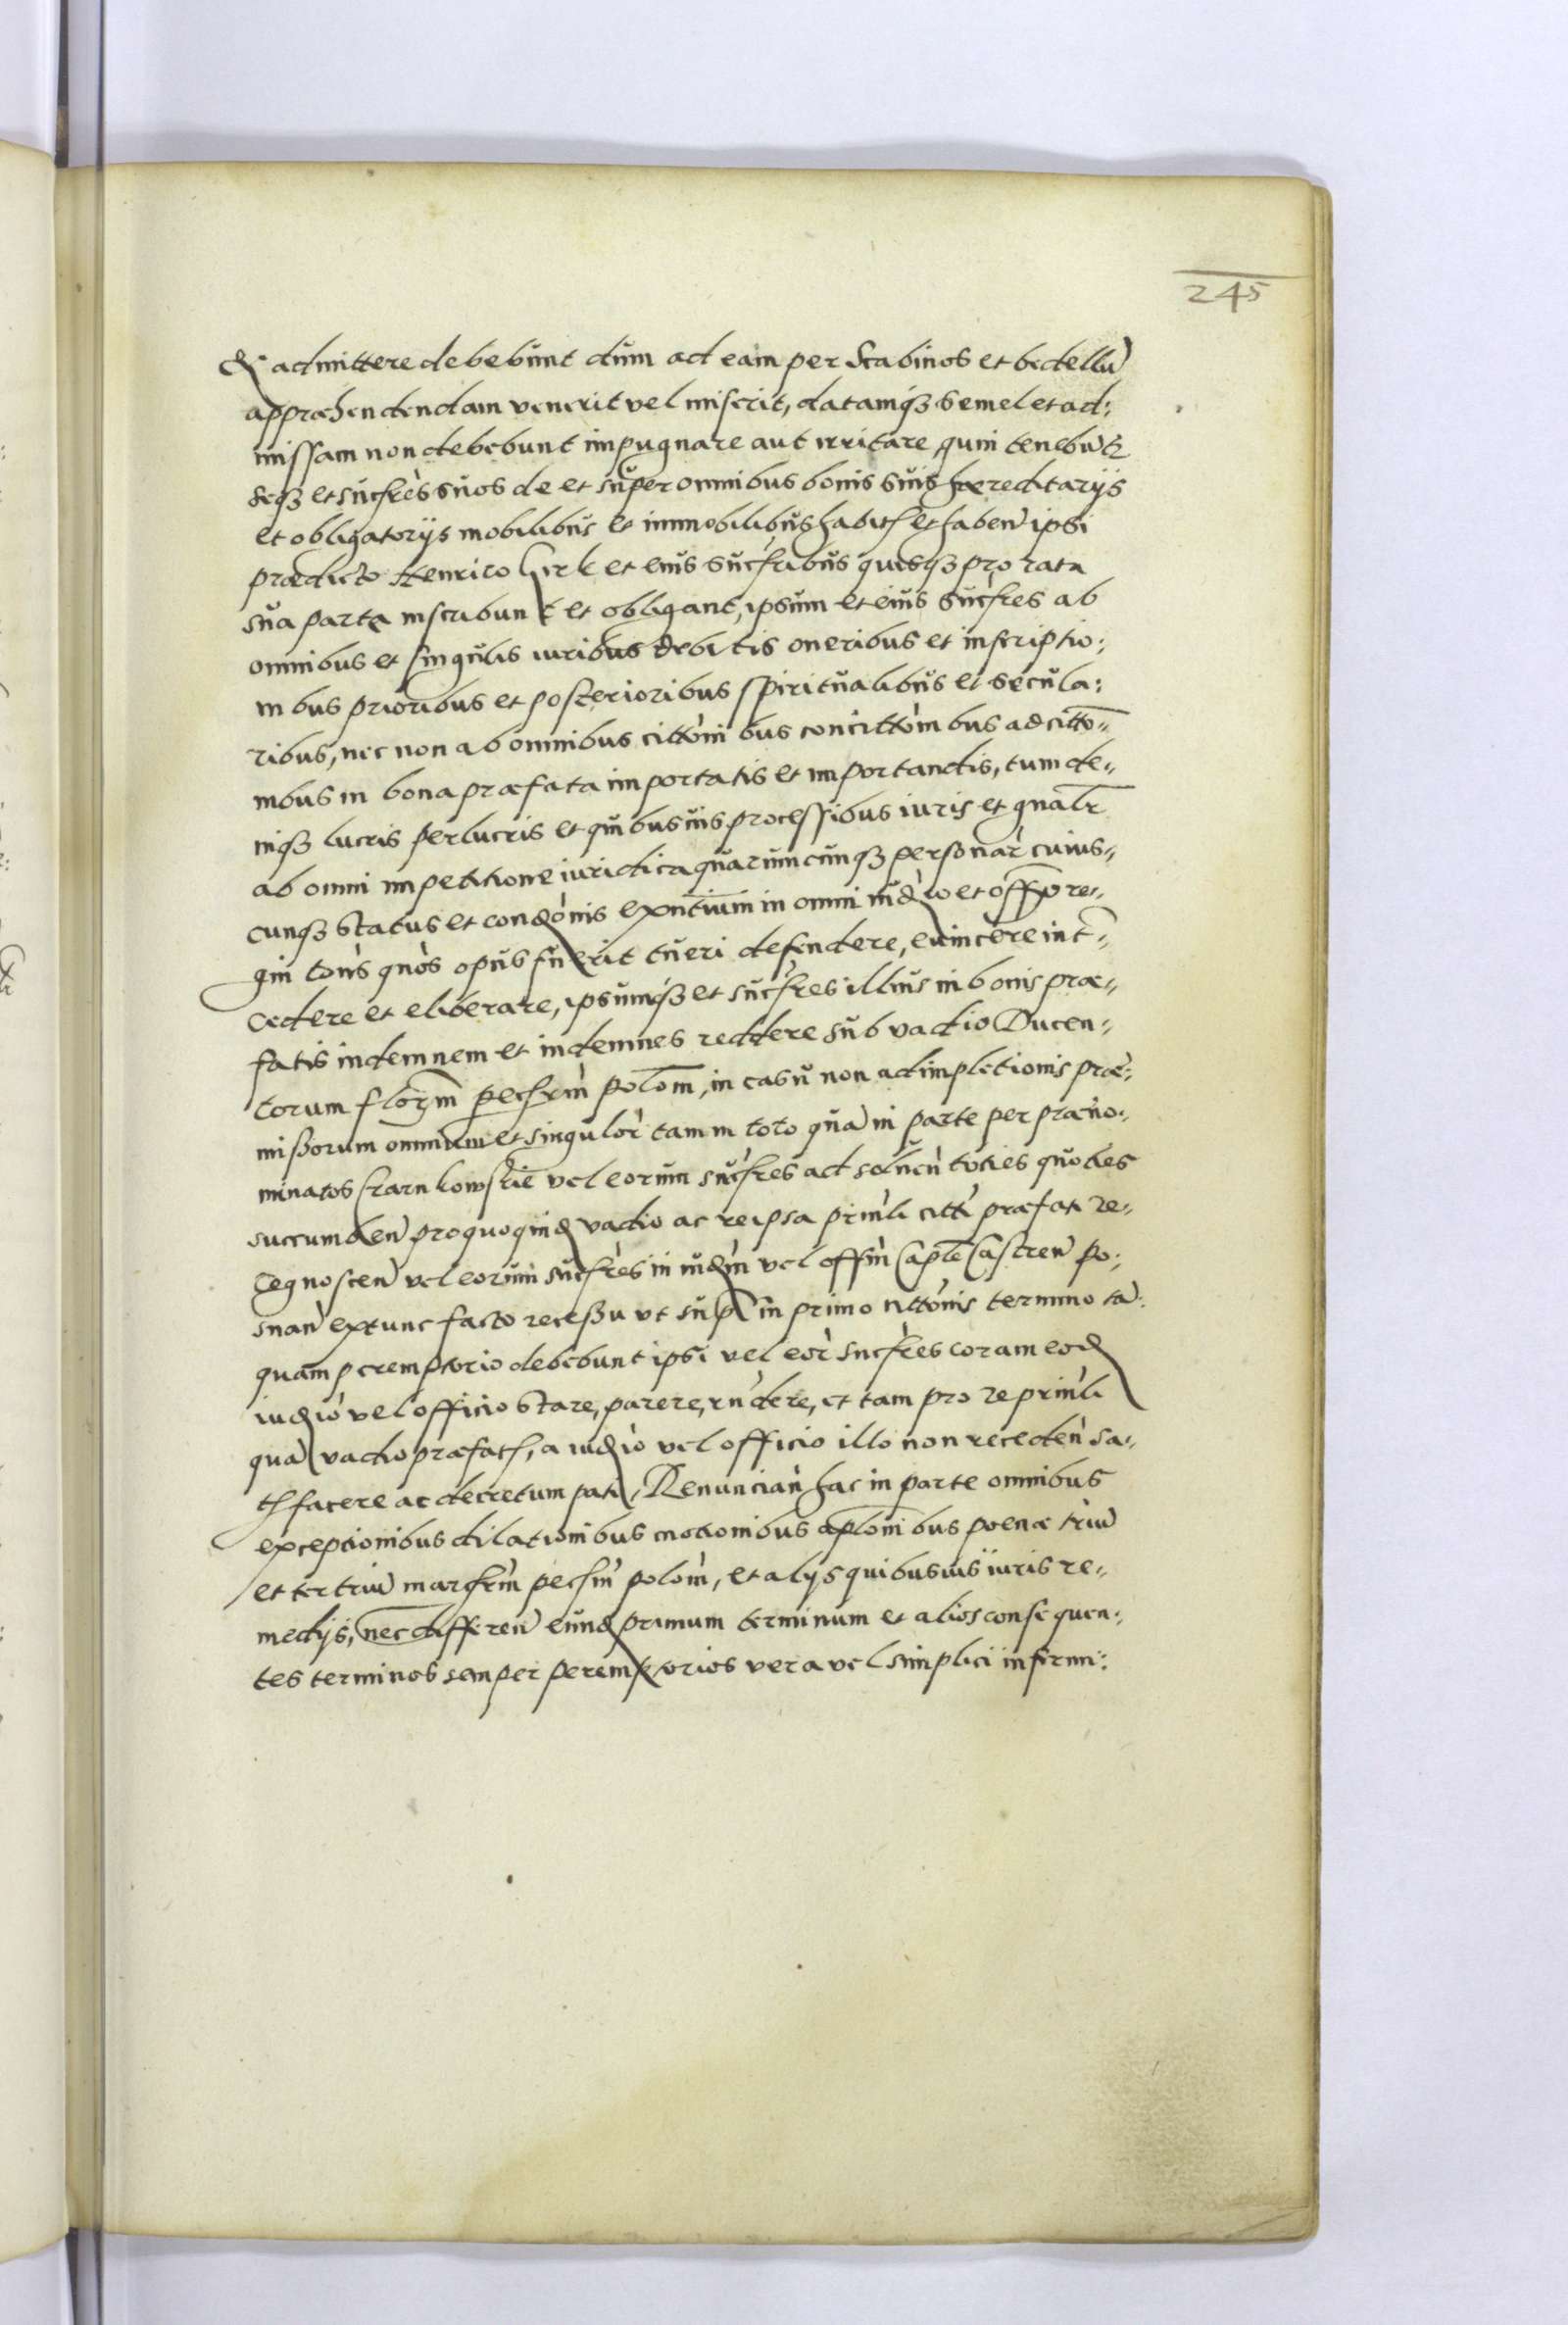 245
& admittere debebunt dum ad eam per Scabinos et bedellū
appræhendendam venerit vel miserit, datamqȝ semel et ad:
missam non debebunt impugnare aut irritare, quin tenebūtꝛ
seqȝ et sucſres suos de et super omnibus bonis suis hæreditarijs
et obligatorijs mobilibus et immobilibus habitꝭ et haben̄ ipsi
prædicto Henrico Girk et eius sucſribus quisqȝ pro rata
sua parte inscribunt et obligant, ipsum et eius sucſres ab
omnibus et singulis iuribus debitis oneribus et inscriptio:
nibus prioribus et posterioribus spiritualibus et secula:
ribus, nec non ab omnibus cittōnibus concittōnibus adcittō=
nibus in bona præfata importatis et importandis, tum de=
niqȝ lucris perlucris et quibusuis processibus iuris et gnālr
ab omni impetitione iuridica quarumcunqȝ personar̄ cuius=
cunqȝ status et condōnis exn̄tium in omni iudīo et off̄o re=
gni tōns quōs opus fuerit tueri defendere, euincere int̄=
cedere et eliberare, ipsumqȝ et sucſres illius in bonis præ=
fatis indemnem et indemnes reddere sub vadio Ducen=
torum flor̄m pecſrm̄ polōm, in casu non adimpletionis præ:
missorum omnium et singulor̄ tam in toto quā in parte per præno:
minatos Czarnkowskie vel eorum sucſres ad soluen̄ toties quoties
succumben̄ pro quo quid vadio ac re ipsa prīnli citti præfati re=
cognoscen̄ vel eorum sucſres in iudm̄ vel offm̄ Caple Castren̄ Po:
snan̄ extunc facto recessu vt sup̄ in primo cittōnis termino tā
quam peremptorio debebunt ipsi vel eor̄ sucſres coram eod
iudīo vel officio stare, parere, rn̄dere, et tam pro re prīnli
quā vadio præfatꝭ, a iudīo vel officio illo non receden̄ sa:
tꝭfacere ac decretum pati, Renuncian̄ hac in parte omnibus
exceptionibus dilationibus motionibus applōnibus poenæ triū
et ter triū marcſrm̄ pecſm̄ polōm̄, et alijs quibusuis iuris re=
medijs, nec differen̄ eund primum terminum et alios consequen:
tes terminos semper peremptorios vera vel simplici infirmi: